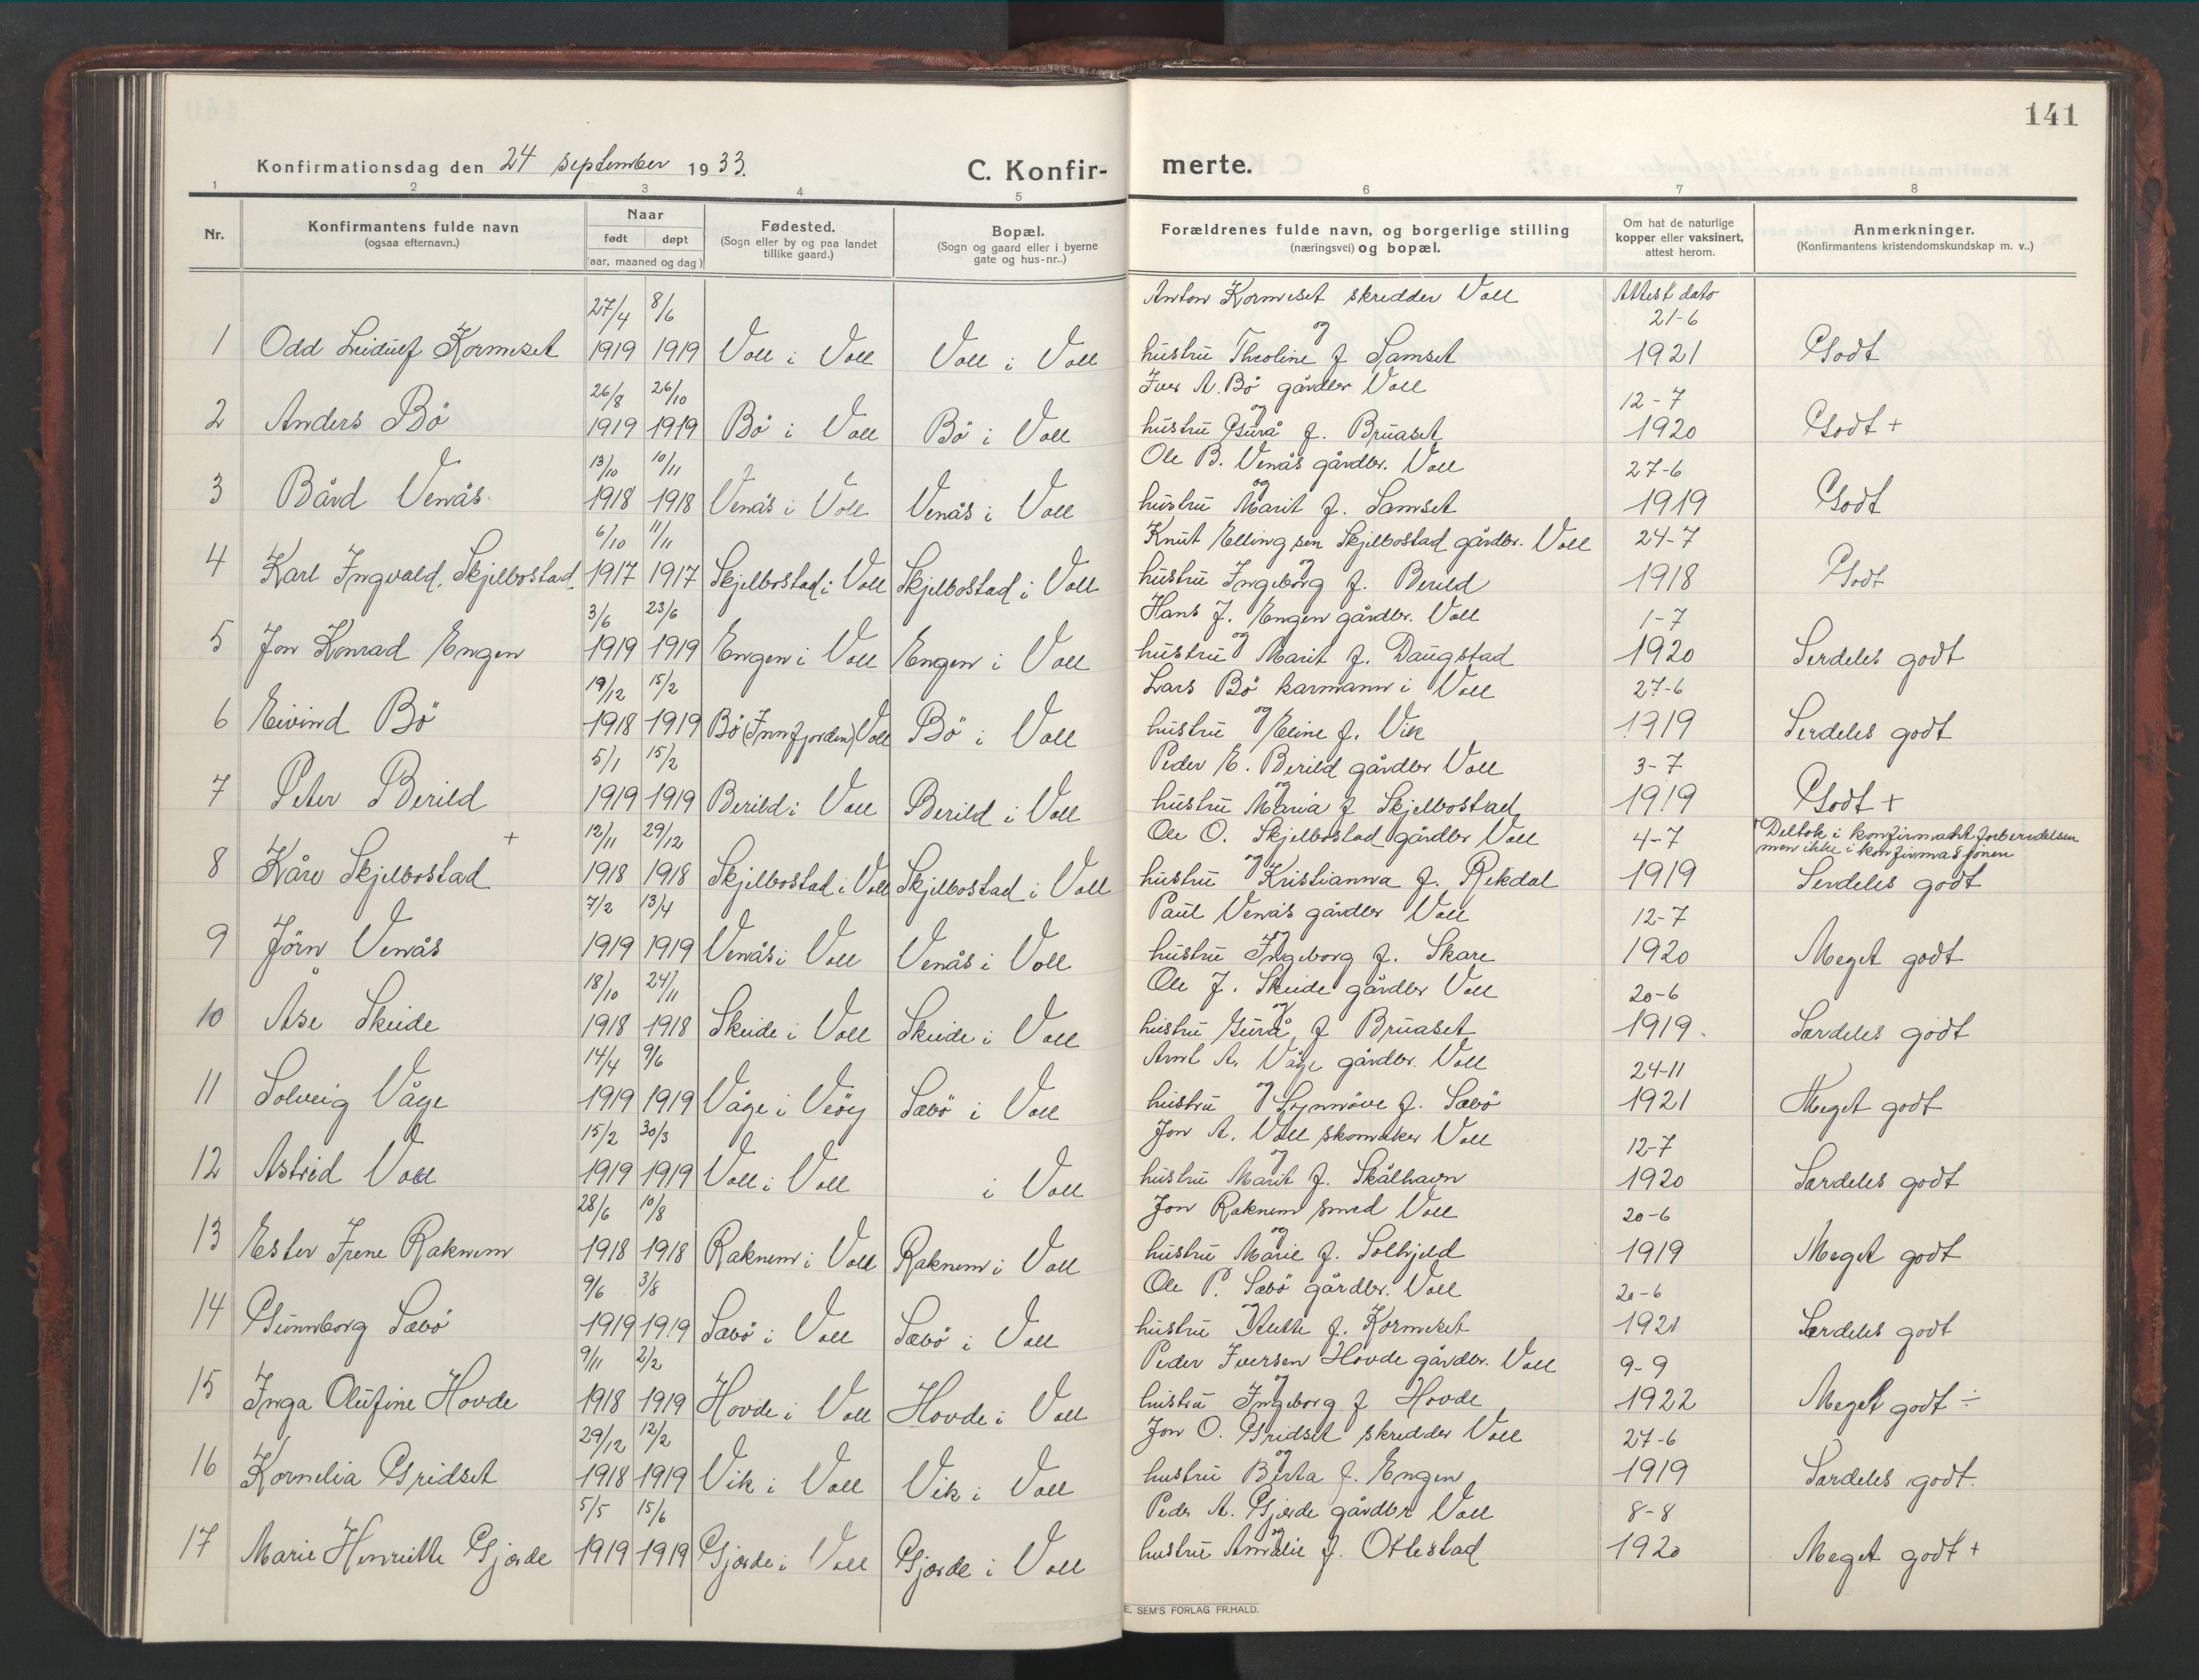 141
Konfirmationsdag den 24 september 1933.
C. Konfirmerte.
1 2 3 4 5 6 7 8
Nr.
Konfirmantens fulde navn
(ogsaa efternavn.)
Naar
født døpt
(aar, maaned og dag)
Fødested.
(Sogn eller by og paa landet
tillike gaard.)
Bopæl.
(Sogn og gaard eller i byerne
gate og hus-nr..)
Forældrenes fulde navn, og borgerlige stilling
(næringsvei) og bopæl.
Om hat de naturlige
kopper eller vaksinert,
attest herom.
Anmerkninger.
(Konfirmantens kristendomskundskap m. v..)
27/4 8/6 Anton Kormeset skredder Voll Attest dato
og 21-6
1 Odd Leidulf Kormeset 1919 1919 Voll i Voll Voll i Voll hustru Theoline f Samset 1921 Godt
26/8 26/10 Iver A. Bö gårdbr Voll 12-7
2 Anders Bö 1919 1919 Bö i Voll Bö i Voll og hustru Gurå f. Bruaset 1920 Godt +
13/10 10/11 Ole B. Venås gårdbr. Voll 27-6
3 Bård Venås 1918 1918 Venås i Voll Venås i Voll og hustru Marit f. Samset 1919 Godt
6/10 11/11 Knut Ellingsen Skjelbostad gårdbr. Voll 24-7
4 Karl Ingvald Skjelbostad 1917 1917 Skjelbostad i Voll Skjelbostad i Voll og hustru Ingeborg f. Berild 1918 Godt
3/6 23/6 Hans J. Engen gårdbr. Voll 1-7
5 Jon Konrad Engen 1919 1919 Engen i Voll Engen i Voll og hustru Marit f. Daugstad 1920 Serdeles godt
19/12 15/2 Lars Bö karmann i Voll 27-6
6 Eivind Bö 1918 1919 Bö (Innfjorden) Voll Bö i Voll og hustru Eline f. Vik 1919 Serdeles godt
5/1 15/2 Peder E. Berild gårdbr Voll 3-7
7 Peter Berild 1919 1919 Berild i Voll Berild i Voll og hustru Maria f Skjelbostad 1919 Godt +
+ 12/11 29/12 Ole O. Skjelbostad gårdbr Voll 4-7 + Deltok i konfirmantforberedelsen
men ikke i konfirmasjonen
8 Kåre Skjelbostad 1918 1918 Skjelbostad i Voll Skjelbostad i Voll og hustru Kristianna f. Rekdal 1919 Serdeles godt
7/2 13/4 Paul Venås gårdbr Voll 12-7
9 Jörn Venås 1919 1919 Venås i Voll Venås i Voll og hustru Ingeborg f. Skare 1920 Meget godt
18/10 24/11 Ole J. Skeide gårdbr Voll 20-6
10 Åse Skeide 1918 1918 Skeide i Voll Skeide i Voll og hustru Gurå f Bruaset 1919. Særdeles godt
14/4 9/6 Arnt A. Våge gårdbr. Voll 24-11
11 Solveig Våge 1919 1919 Våge i Veöy Sæbö i Voll og hustru Synnöve f. Sæbö 1921 Meget godt
15/2 30/3 Jon A. Voll skomaker Voll 12-7
12 Astrid Voll 1919 1919 Voll i Voll i Voll og hustru Marit f. Skålhavn 1920 Særdeles godt
28/6 10/8 Jon Raknem smed Voll 20-6
13 Ester Irene Raknem 1918 1918 Raknem i Voll Raknem i Voll og hustru Marie f. Solhjeld 1919 Meget godt
9/6 3/8 Ole P. Sæbö gårdbr. Voll 20-6
14 Gunnborg Sæbö 1919 1919 Sæbö i Voll Sæbö i Voll og hustru f. Kormeset 1921 Særdeles godt
9/11 2/2 Peder Iversen Hovde gårdbr. Voll 9-9
15 Inga Olufine Hovde 1918 1919 Hovde i Voll Hovde i Voll og hustru Ingeborg f Hovde 1922 Meget godt ÷
29/12 12/2 Jon O. Gridset skredder Voll 27-6
16 Kornelia Gridset 1918 1919 Vik i Voll Vik i Voll og hustru Berta f. Engen 1919 Særdeles godt.
5/5 15/6 Peder A. Gjærde gårdbr Voll 8-8
17 Marie Henriette Gjærde 1919 1919 Gjærde i Voll Gjærde i Voll og hustru Amalie f. Ottestad 1920 Meget godt +
E. SEM'S FORLAG FR.HALD.